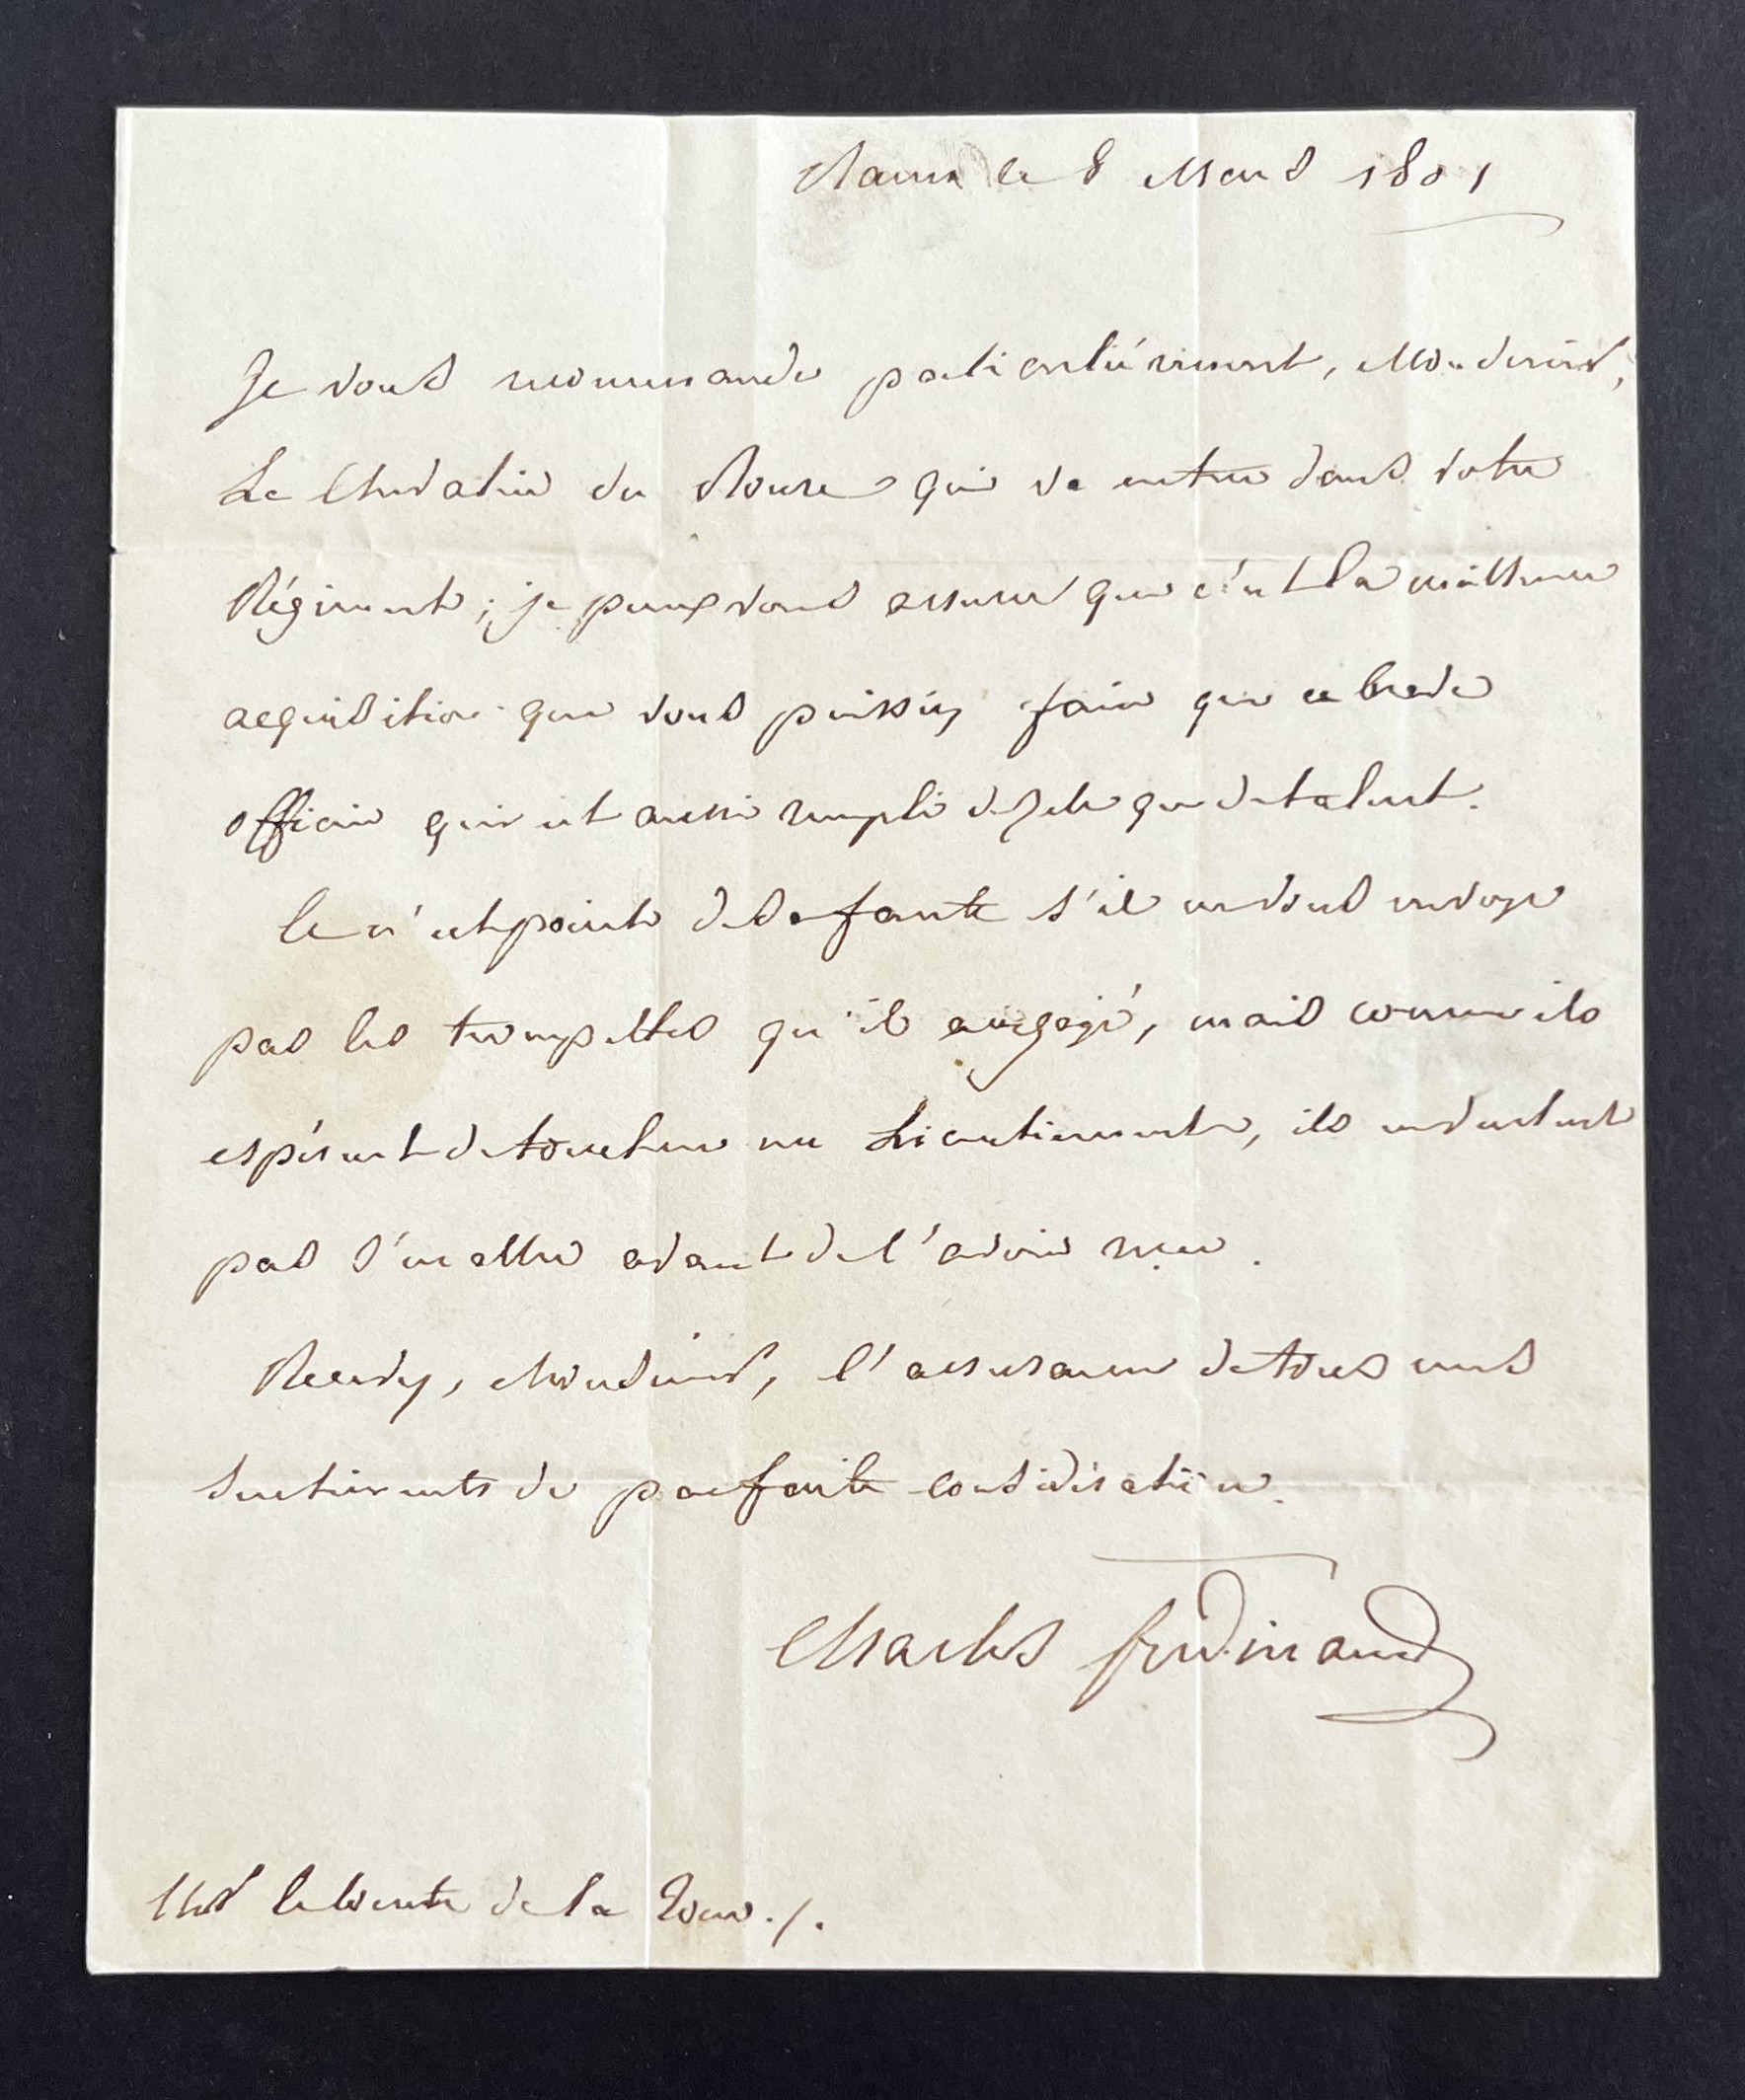 le 8 Mars 1801
Je vous recommande particulièrement, Monsieur,
Le Chevalier du Roure qui va entrer dans votre
Régiment; je peux vous assurer que c'est la meilleure
acquisition que vous puissiez faire que ce brave
officier qui est aussi rempli de zele que de talent.
Ce n'est point de sa faute s'il ne vous envoye
pas les trompettes qu'il a engagé, mais comme ils
espérent de toucher un Licentiement, ils ne veulent
pas s'en aller avant de l'avoir reçu.
Recevez, Monsieur, l'assurance de tous mes
Sentiments de parfaite considération.
Charles ferdinand
Mr le Comte de la Tour./.